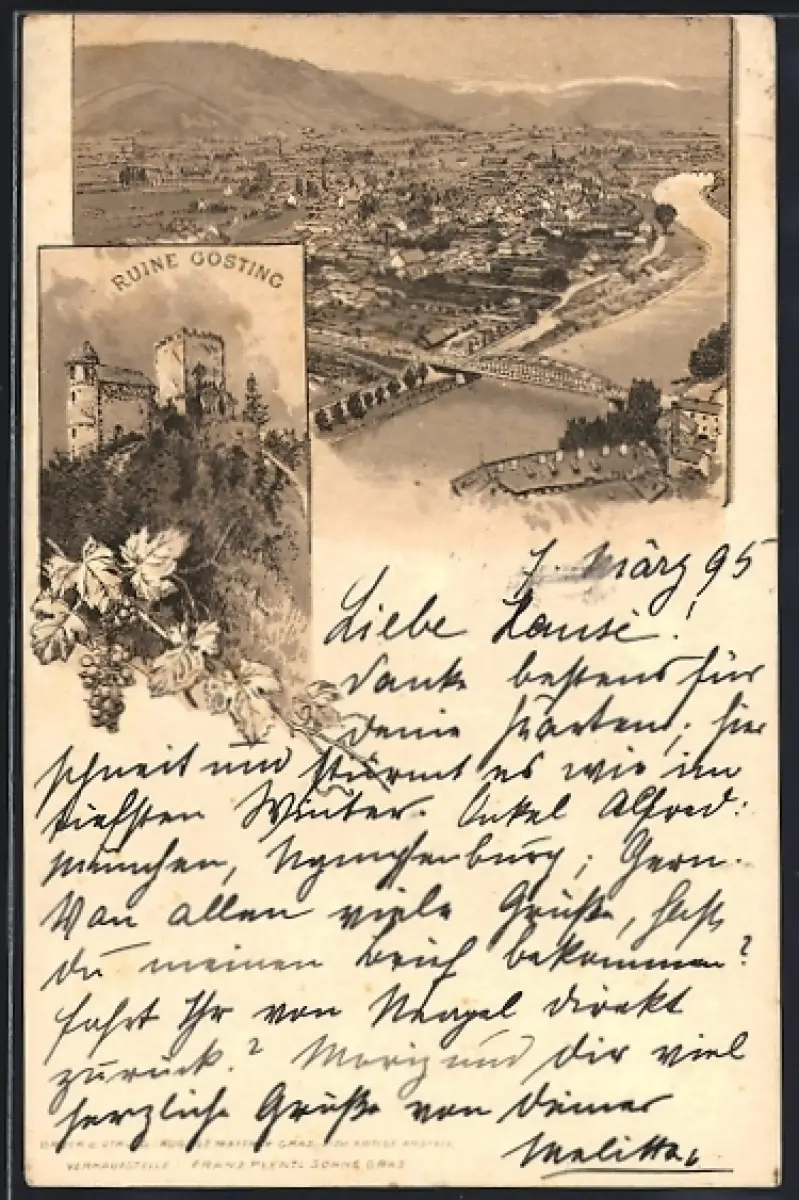 RUINE GÖSTING
7. März 95
Liebe !
Danke bestens für
Deine Karten; hier
schneit und stürmt es wie im
tiefsten Winter. Onkel Alfred:
München, Nymphenburg; Gern.
Von allen viele Grüße, hast
du meinen Brief bekommen?
Fahrt Ihr von Neapel direkt
zurück? Moriz und Dir viel
herzliche Grüße von Deiner
Melitta.
DRUCK U. GRAZ
VERKAUFSTELLE : FRANZ PLENTL SÖHNE GRAZ